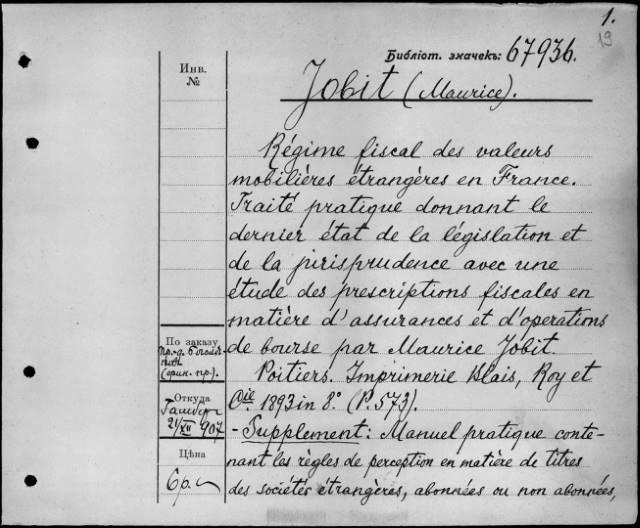 1.
19
Библіот. значекъ: 67936.
Инв.
№
Jobit (Maurice).
Régime fiscal des valeurs
mobilières étrangères en France.
Traité pratique donnant le
dernier état de la législation et
de la jurisprudence avec une
étude des prescriptions fiscales en
matière d'assurances et d'opérations
de bourse par Maurice Jobit.
Poitiers. Imprimerie Blais, Roy et
Cie. 1893 in 8°. (P. 573).
- Supplement: Manuel pratique conte-
nant las règles de perception en matière de titres
des sociétés étrangères, abonnées ou non abonnées,
По заказу
(фин. пр.).
Откуда
21/XII 907
Цѣна
6 р.